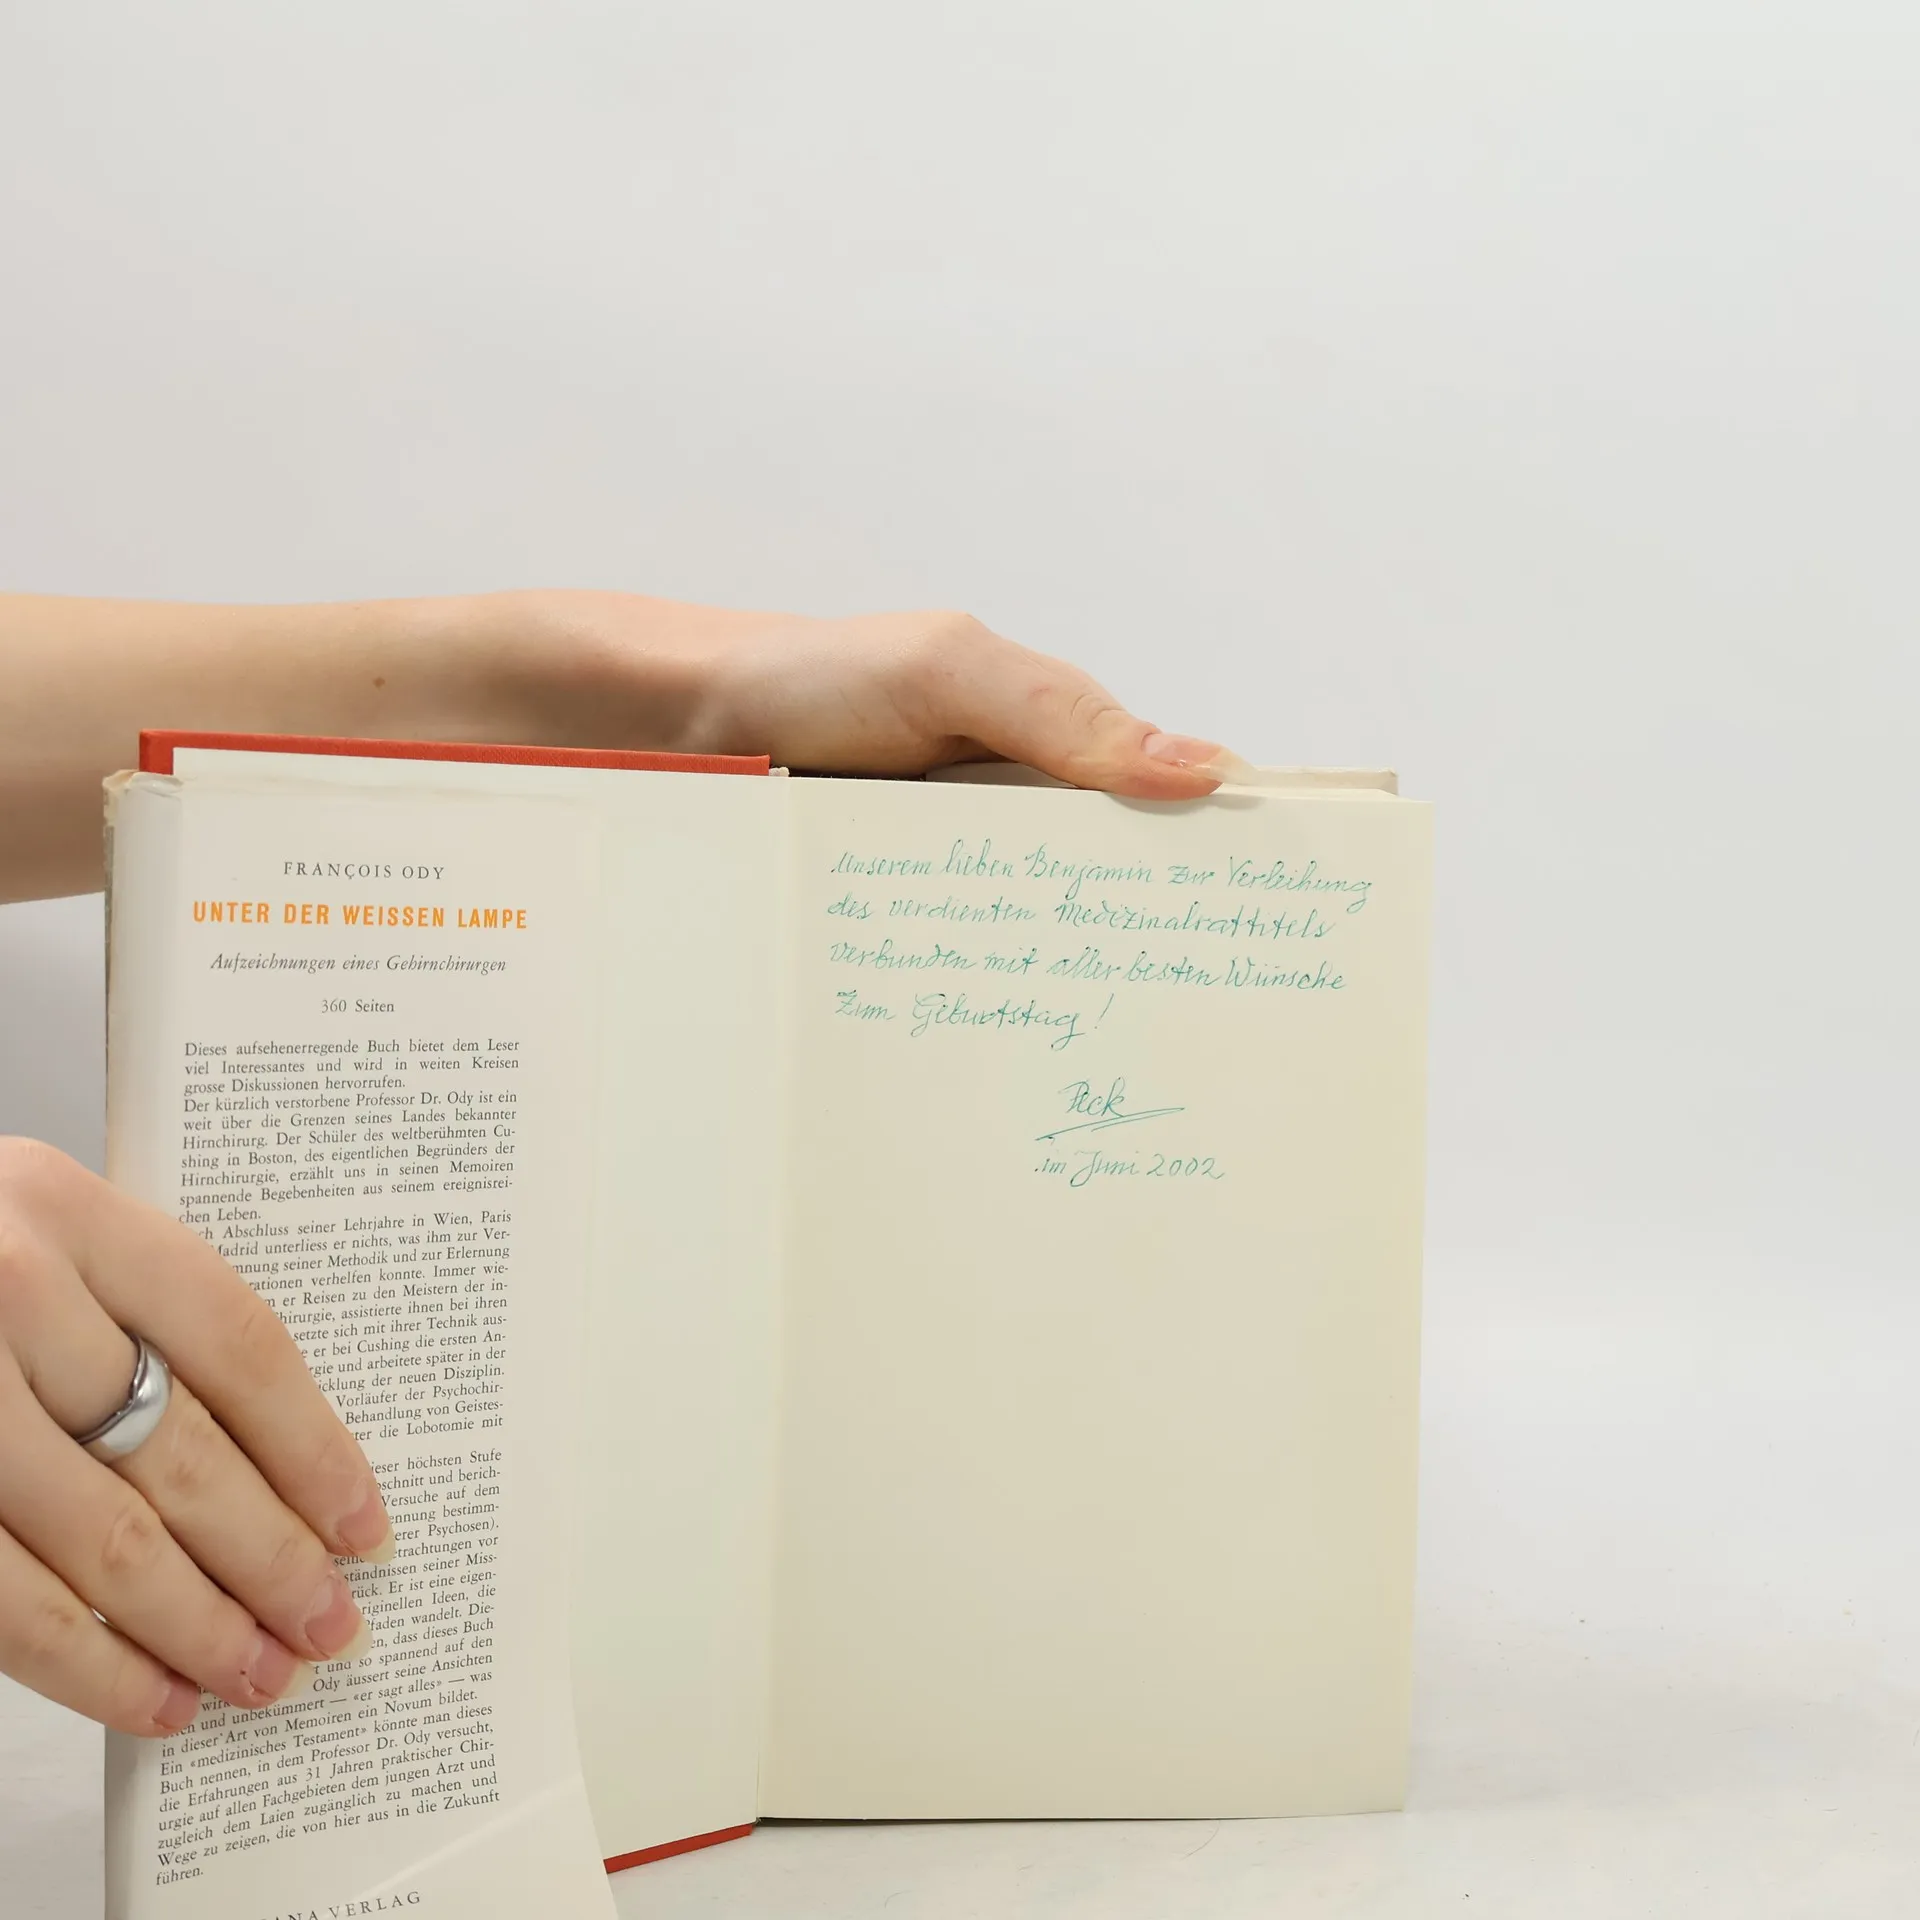 FRANÇOIS ODY
UNTER DER WEISSEN LAMPE
Aufzeichnungen eines Gehirnchirurgen
360 Seiten
Dieses aufsehenerregende Buch bietet dem Leser
viel Interessantes und wird in weiten Kreisen
grosse Diskussionen hervorrufen.
Der kürzlich verstorbene Professor Dr. Ody ist ein
weit über die Grenzen seines Landes bekannter
Hirnchirurg. Der Schüler des weltberühmten Cu-
shing in Boston, des eigentlichen Begründers der
Hirnchirurgie, erzählt uns in seinen Memoiren
spannende Begebenheiten aus seinem ereignisrei-
chen Leben.
ch Abschluss seiner Lehrjahre in Wien, Paris
Madrid unterliess er nichts, was ihm zur Ver-
mnung seiner Methodik und zur Erlernung
rationen verhelfen konnte. Immer wie-
m er Reisen zu den Meistern der in-
hirurgie, assistierte ihnen bei ihren
setzte sich mit ihrer Technik aus-
e er bei Cushing die ersten An-
rgie und arbeitete später in der
icklung der neuen Disziplin.
Vorläufer der Psychochir-
Behandlung von Geistes-
ter die Lobotomie mit
ieser höchsten Stufe
schnitt und berich-
Versuche auf dem
ennung bestimm-
erer Psychosen).
seine etrachtungen vor
ständnissen seiner Miss-
rück. Er ist eine eigen-
riginellen Ideen, die
Pfaden wandelt. Die-
en, dass dieses Buch
t und so spannend auf den
Ody äussert seine Ansichten
und unbekümmert — «er sagt alles» — was
in dieser Art von Memoiren ein Novum bildet.
Ein «medizinisches Testament» könnte man dieses
Buch nennen, in dem Professor Dr. Ody versucht,
die Erfahrungen aus 31 Jahren praktischer Chir-
urgie auf allen Fachgebieten dem jungen Arzt und
zugleich dem Laien zugänglich zu machen und
Wege zu zeigen, die von hier aus in die Zukunft
führen.
ANA VERLAG
Unserem lieben Benjamin zur Verleihung
des verdienten Medizinalrattitels
verbunden mit aller besten Wünsche
zum Geburtstag!
im Juni 2002